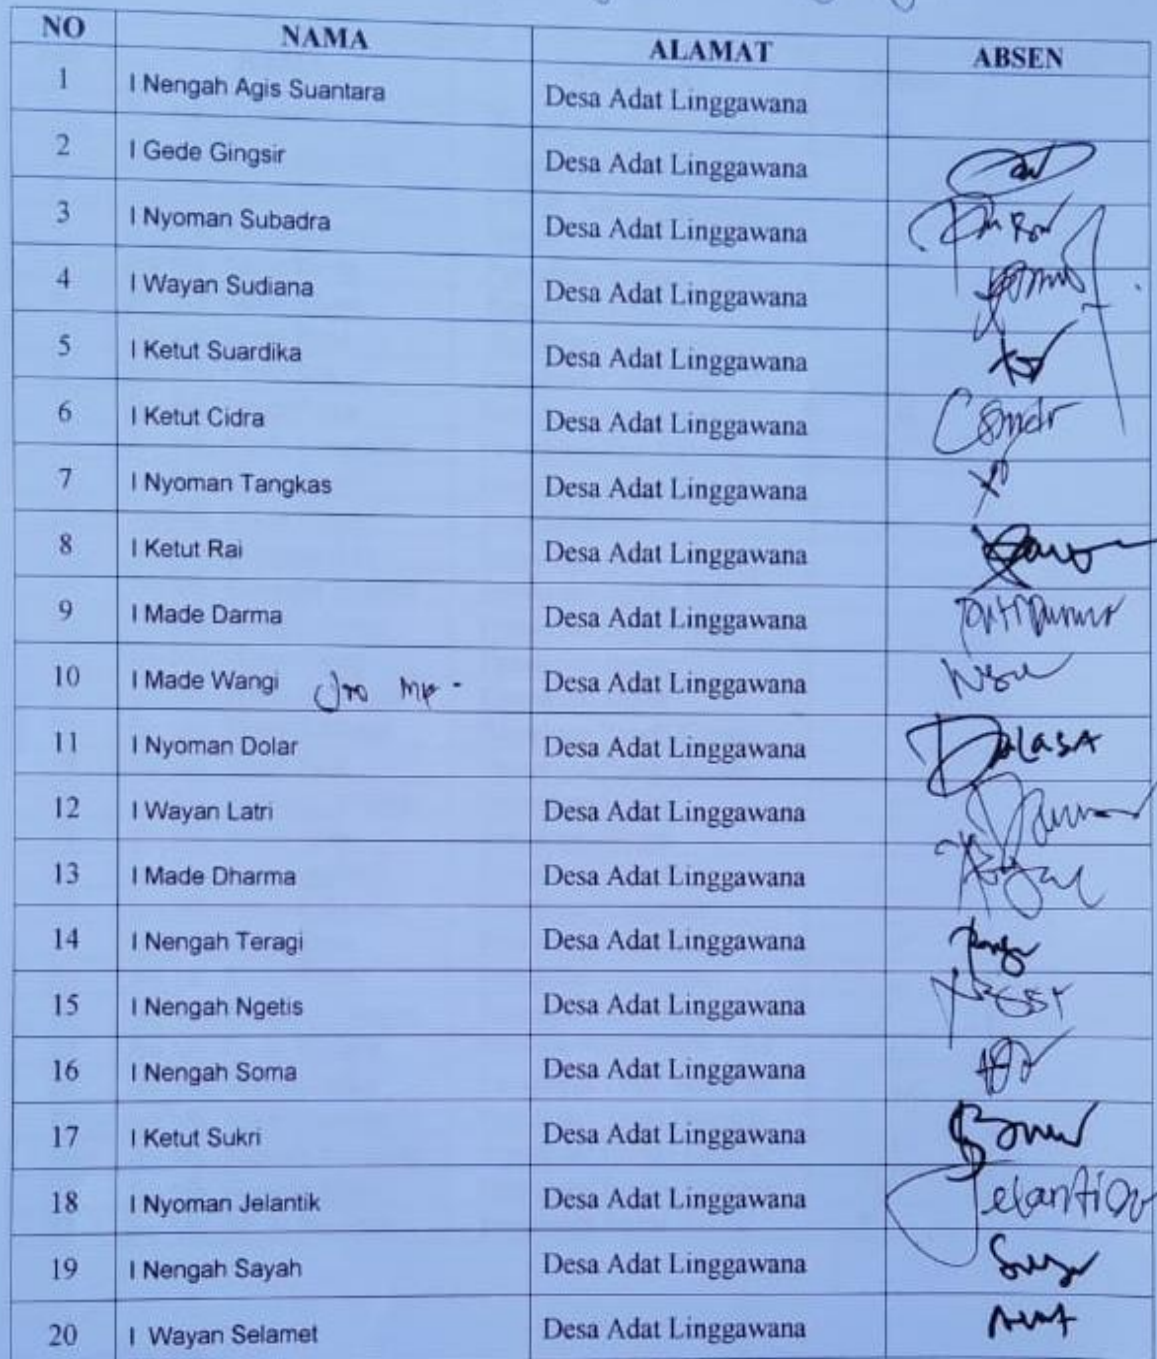 NO NAMA ALAMAT ABSEN
1 I Nengah Agis Suantara Desa Adat Linggawana
2 I Gede Gingsir Desa Adat Linggawana
3 I Nyoman Subadra Desa Adat Linggawana
4 I Wayan Sudiana Desa Adat Linggawana
5 I Ketut Suardika Desa Adat Linggawana
6 I Ketut Cidra Desa Adat Linggawana
7 I Nyoman Tangkas Desa Adat Linggawana
8 I Ketut Rai Desa Adat Linggawana
9 I Made Darma Desa Adat Linggawana
10 I Made Wangi Jro Mp - Desa Adat Linggawana
11 I Nyoman Dolar Desa Adat Linggawana
12 I Wayan Latri Desa Adat Linggawana
13 I Made Dharma Desa Adat Linggawana
14 I Nengah Teragi Desa Adat Linggawana
15 I Nengah Ngetis Desa Adat Linggawana
16 I Nengah Soma Desa Adat Linggawana
17 I Ketut Sukri Desa Adat Linggawana
18 I Nyoman Jelantik Desa Adat Linggawana
19 I Nengah Sayah Desa Adat Linggawana
20 I Wayan Selamet Desa Adat Linggawana